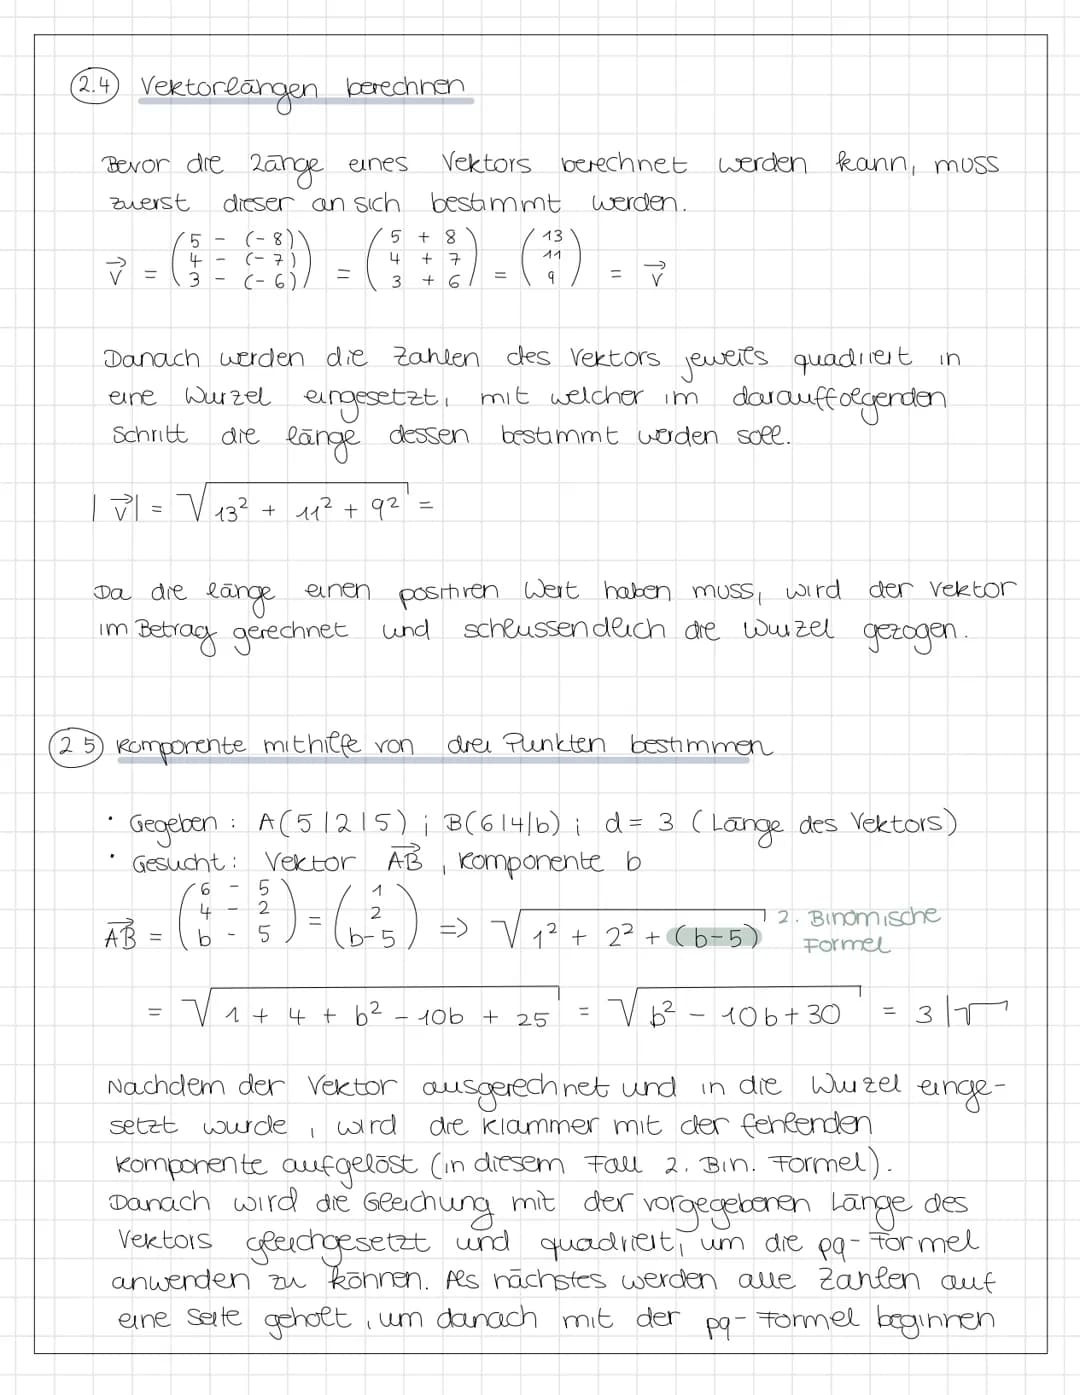 2.4 Vektorlängen berechnen
Bevor die Länge eines Vektors berechnet werden kann, muss
zuerst dieser an sich bestimmt werden.
v⃗ = (5 - (-8) / 4 - (-7) / 3 - (-6)) = (5 + 8 / 4 + 7 / 3 + 6) = (13 / 11 / 9) = v⃗
Danach werden die Zahlen des Vektors jeweils quadriert in
eine Wurzel eingesetzt, mit welcher im darauffolgenden
Schritt die länge dessen bestimmt werden soll.
|v⃗| = √(13² + 11² + 9²) =
Da die länge einen positiven Wert haben muss, wird der Vektor
im Betrag gerechnet und schlussendlich die Wurzel gezogen.
2.5 Komponente mithilfe von drei Punkten bestimmen
• Gegeben : A(5|2|5) ; B(6|4|b) ; d = 3 (Länge des Vektors)
• Gesucht : Vektor AB⃗, Komponente b
AB⃗ = (6 - 5 / 4 - 2 / b - 5) = (1 / 2 / b-5) => √(1² + 2² + (b-5)) 2. Binomische
Formel
= √(1 + 4 + b² - 10b + 25) = √(b² - 10b + 30) = 3 |√
Nachdem der Vektor ausgerechnet und in die Wurzel einge-
setzt wurde, wird die Klammer mit der fehlenden
Komponente aufgelöst (in diesem Fall 2. Bin. Formel).
Danach wird die Gleichung mit der vorgegebenen Länge des
Vektors gleichgesetzt und quadriert, um die pq-Formel
anwenden zu können. Als nächstes werden alle Zahlen auf
eine Seite geholt, um danach mit der pq-Formel beginnen